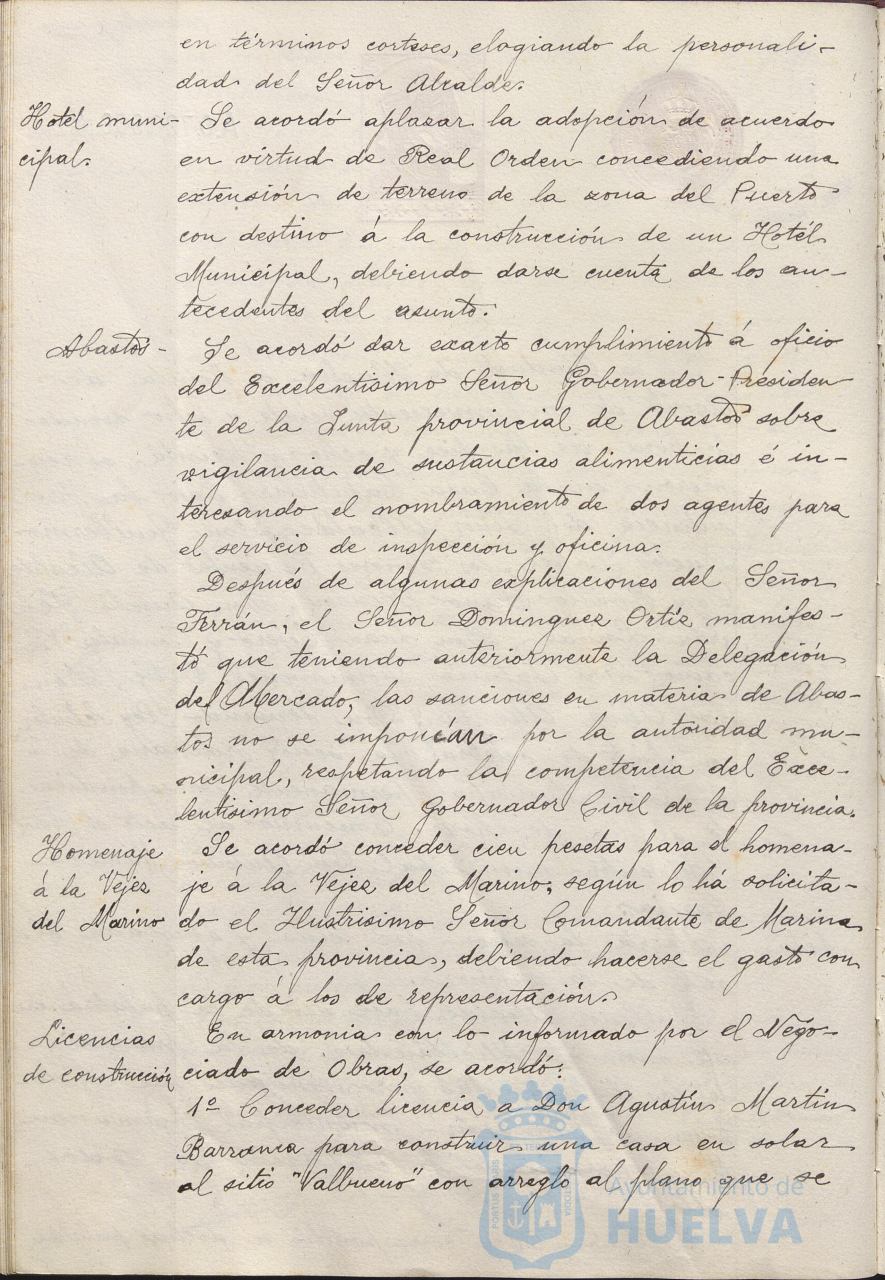 en términos corteses, elogiando la personali-
dad del Señor Alcalde.
Hotel muni-
cipal.
Se acordó aplazar la adopción de acuerdo
en virtud de Real Orden concediendo una
extensión de terreno de la zona del Puerto
con destino á la construcción de un Hotél
Municipal, debiendo darse cuenta de los an-
tecedentes del asunto.
Abastos-
Se acordó dar exacto cumplimiento á oficio
del Excelentisimo Señor Gobernador-Presiden
te de la Junta provincial de Abastos sobre
vigilancia de sustancias alimenticias é in-
teresando el nombramiento de dos agentes para
el servicio de inspección y oficina.
Después de algunas explicaciones del Señor
Terrán, el Señor Dominguez Ortíz manifes-
tó que teniendo anteriormente la Delegación
del Mercado, las sanciones en materia de Abas-
tos no se imponían por la autoridad mu-
nicipal, respetando la competencia del Exce-
lentisimo Señor Gobernador Civil de la provincia.
Homenaje
á la Vejez
del Marino
Se acordó conceder cien pesetas para el homena-
je á la Vejez del Marino, según lo há solicita-
do el Ilustrisimo Señor Comandante de Marina
de esta provincia, debiendo hacerse el gasto con
cargo á los de representación.
Licencias
de construcción
En armonia con lo informado por el Nego-
ciado de Obras, se acordó:
1º Conceder licencia a Don Agustín Martin
Barranca para construir una casa en solar
al sitio "Valbueno" con arreglo al plano que se
Ayuntamiento de
HUELVA